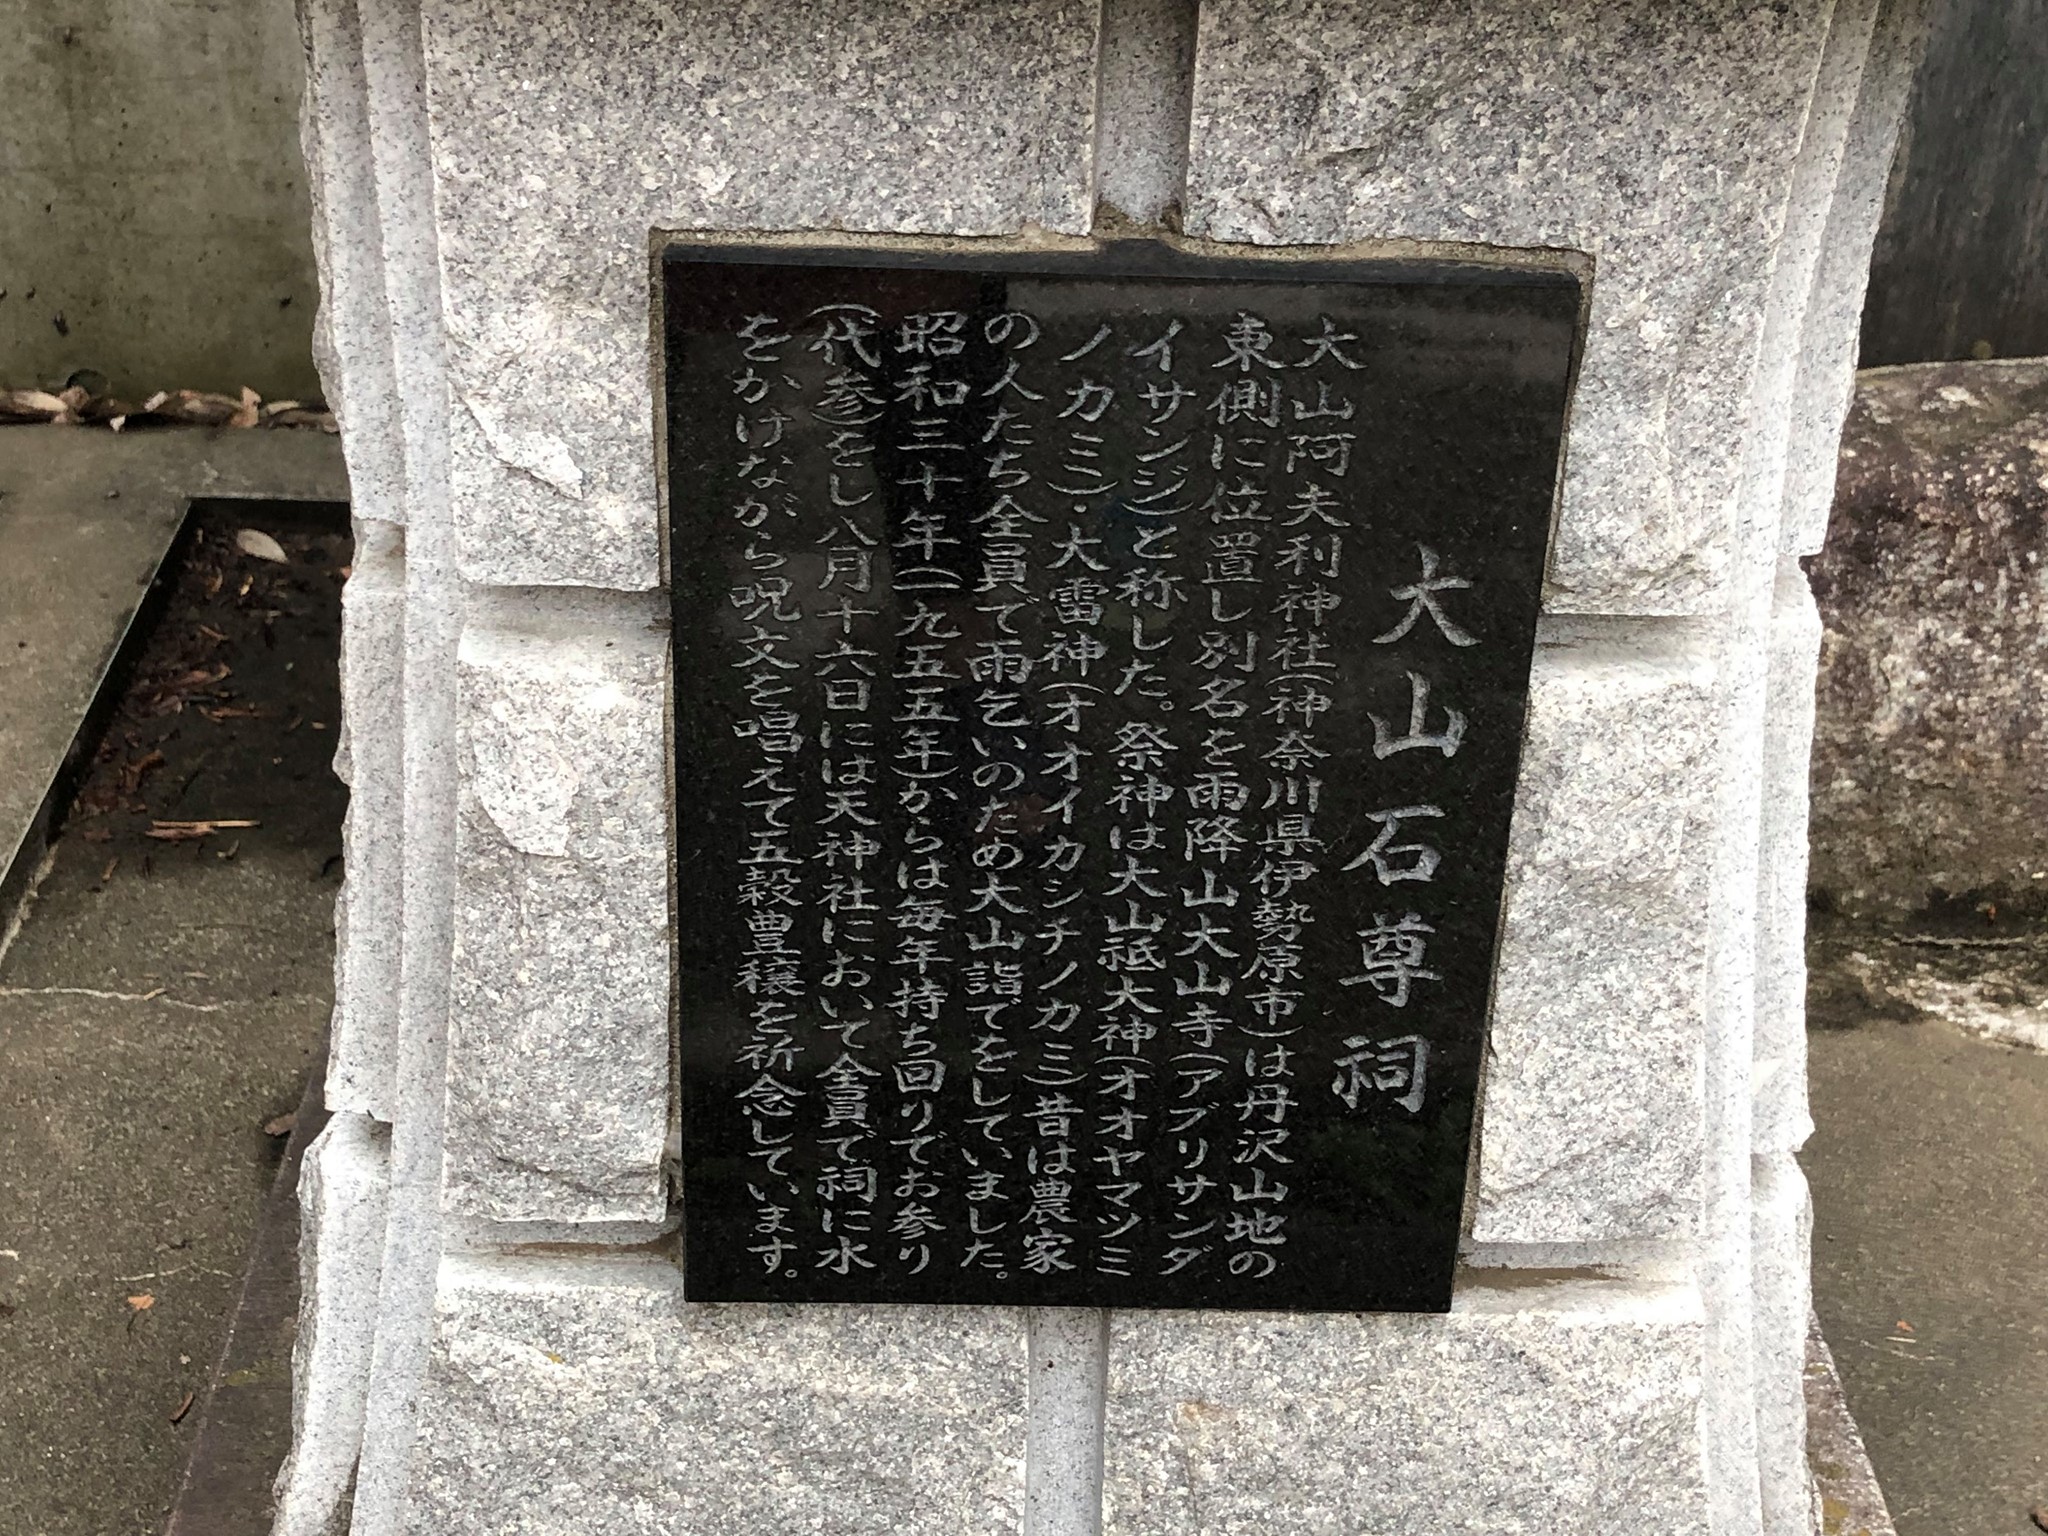 大山石尊祠
大山阿夫利神社(神奈川県伊勢原市)は丹沢山地の
東側に位置し別名を雨降山大山寺(アブリサンダ
イサンジ)と称した。祭神は大山祗大神(オオヤマツミ
ノカミ)・大雷神(オオイカシチノカミ)昔は農家
の人たち全員で雨乞いのため大山詣でをしていました。
昭和三十年(一九五五年)からは毎年持ち回りでお参り
(代参)をし八月十六日には天神社において全員で祠に水
をかけながら呪文を唱えて五穀豊穣を祈念しています。